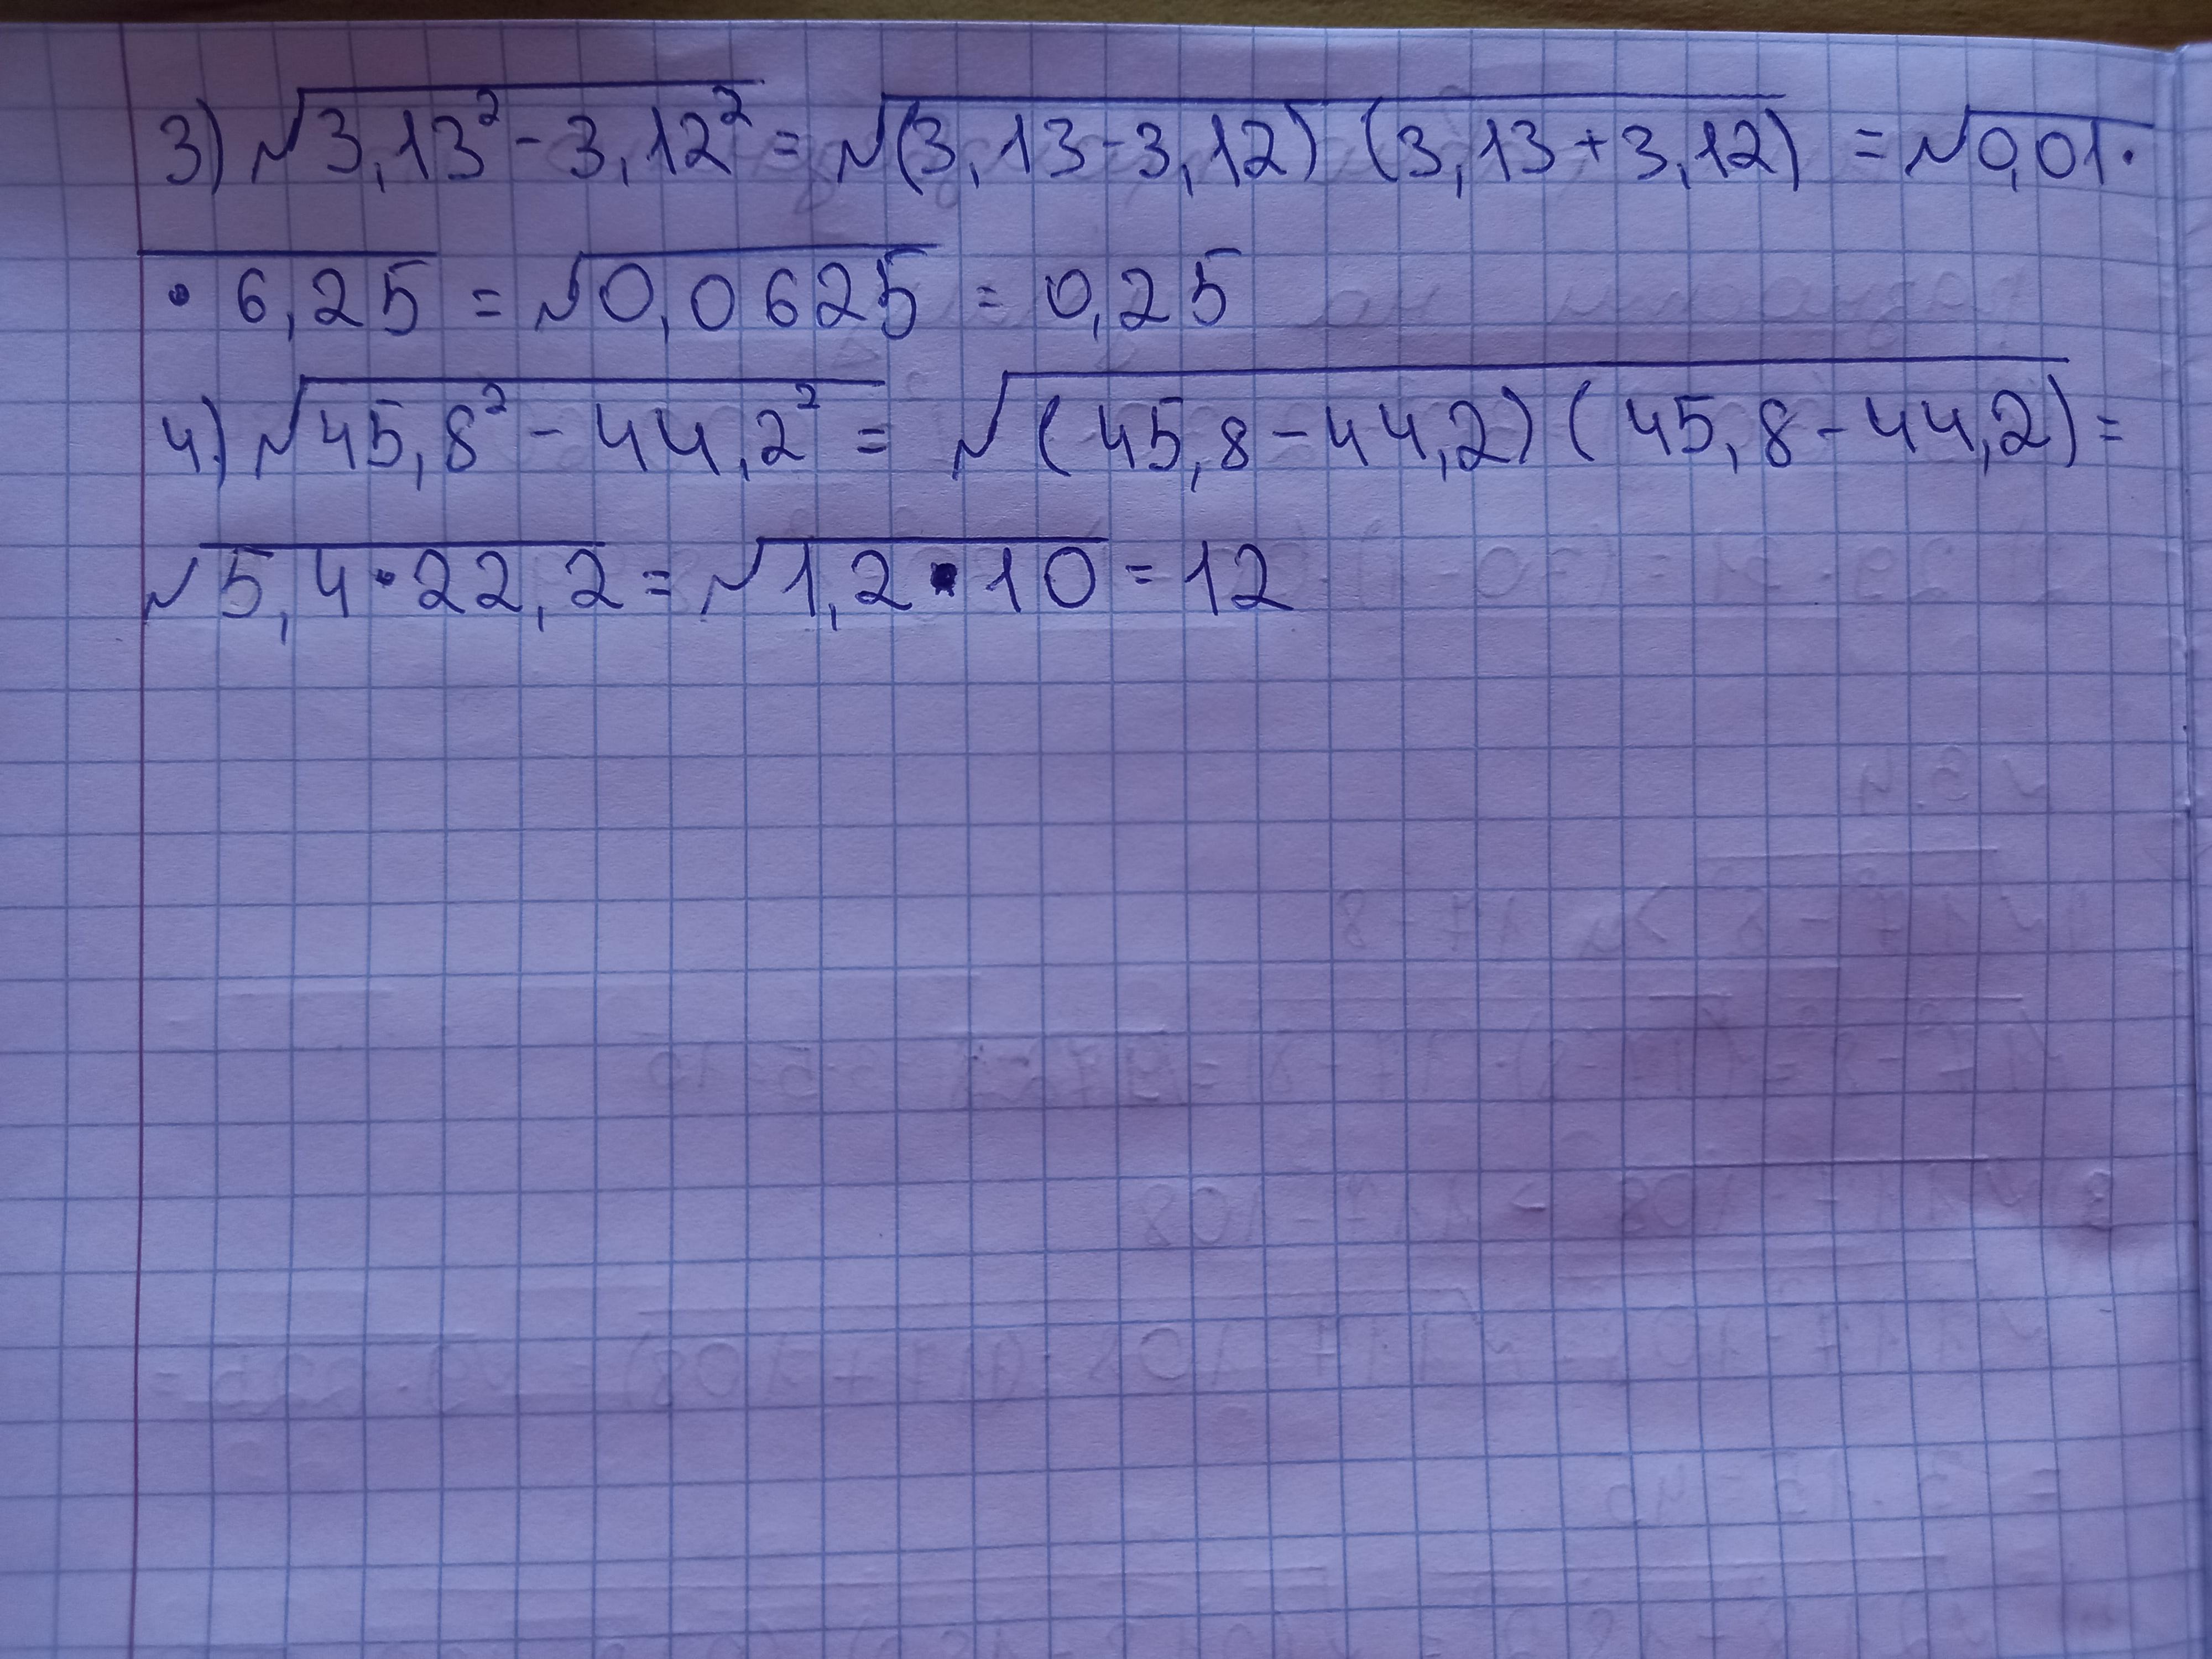 3) √3,13² - 3,12² = √(3,13-3,12) (3,13+3,12) = √0,01·
· 6,25 = √0,0625 = 0,25
4) √45,8² - 44,2² = √(45,8-44,2) (45,8-44,2) =
√5,4·22,2 = √1,2·10 = 12